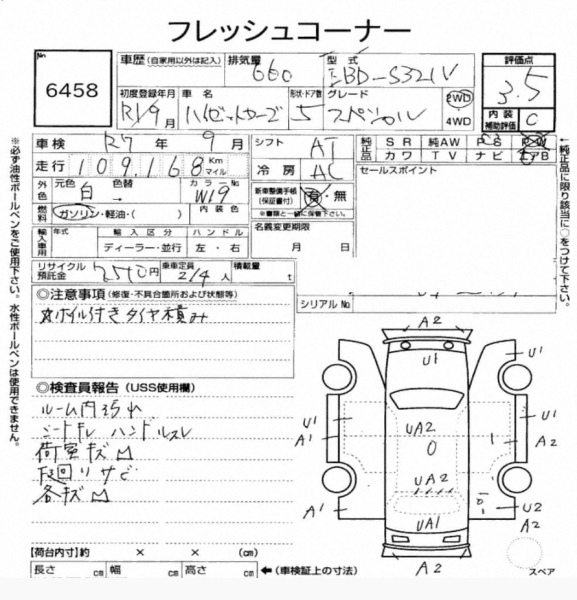 フレッシュコーナー
No
6458
車歴 (自家用以外は記入)
排気量
660
型式
EBD-S321V
評価点
3.5
初度登録年月
R1/9月
車名
ハイゼットカーゴ
形状・ドア数
5
グレード
スペシャル
2WD
4WD
内装
補助評価
C
車検
R7年9月
シフト
AT
走行
109,168
Km
マイル
冷房
AC
純正品
SR
純AW
PS
PW
カワ
TV
ナビ
エアB
外色
元色
白
色替
→
カラーNo
W19
燃料
ガソリン・軽油・( )
内装色
新車整備手帳
(保証書付)
有・無
※書類と一緒に保管下さい。
セールスポイント
輸入車用
年式
輸入区分
ハンドル
ディーラー・並行
左・右
名義変更期限
月 日
リサイクル
預託金
円
乗車定員
2/4人
積載量
t
シリアルNo
◎注意事項 (修復・不具合箇所および状態等)
ホイル付きタイヤ積み
◎検査員報告 (USS使用欄)
ルーム内汚れ
シートキレ ハンドルスレ
荷室キズ凹
下廻りサビ
各キズ凹
【荷台内寸】約 × ×
長さ cm 幅 cm 高さ cm
←(車検証上の寸法)
※必ず油性ボールペンをご使用下さい。水性ボールペンは使用できません。
純正品に限り該当に○をつけて下さい。
A2
U1
U1
A2
U1
A1
UA2
U1
A2
UA2
A1
U2
A2
UA1
A2
スペア